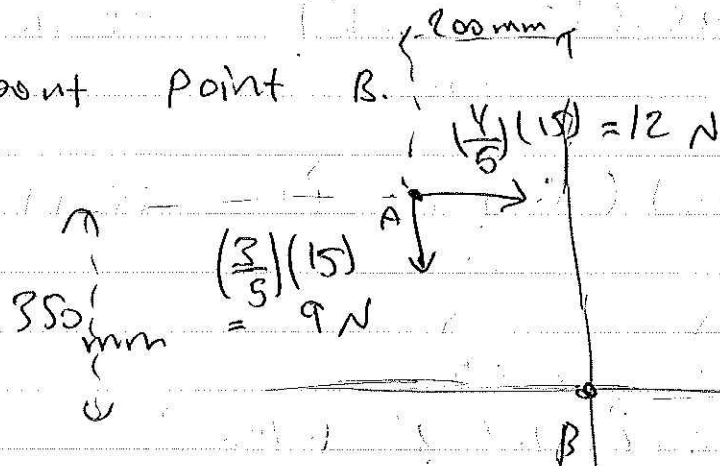 200mm
point B.
(4/5)(15) = 12 N
A
(3/5)(15)
= 9 N
350
mm
B